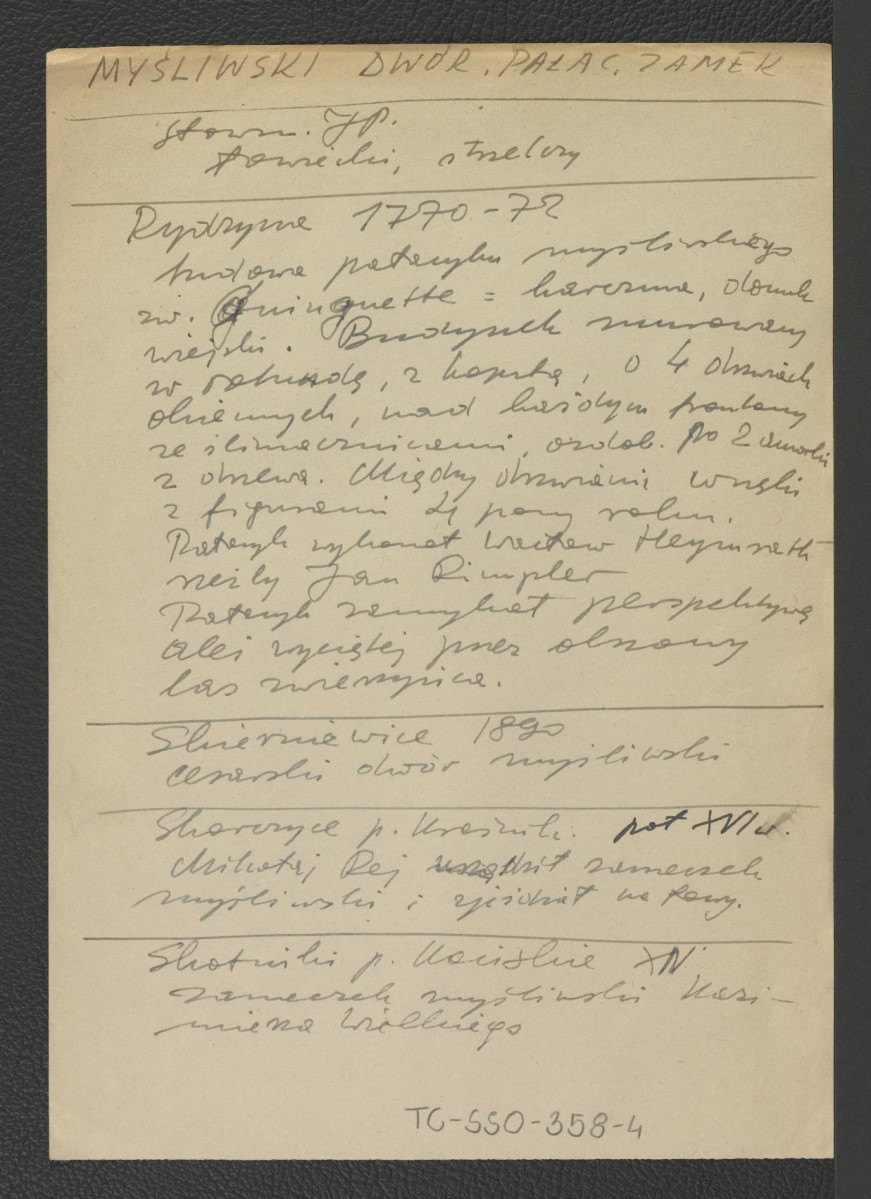 MYŚLIWSKI DWÓR, PAŁAC, ZAMEK
słown. JP.
łowiecki, strzelczy
Rydzyna 1770-72
budowa pałacyku myśliwskiego
zw. Guinguette = karczma, domek
wiejski. Budynek murowany
w rotundę, z kopułą, o 4 drzwiach
okiennych, nad każdym frontony
ze ślimacznicami, ozdob. po 2 amorki
z drzewa. Między drzwiami wnęki
z figurami 4 pory roku.
Pałacyk wykonał Wacław Heymrath
rzeźby Jan Rimpler
Pałacyk zamykał perspektywę
alei wyciętej przez olszowy
las zwierzyńca.
Skierniewice 1890
cesarski dwór myśliwski
Skorczyce p. Kraśnik. poł XVI w.
Mikołaj Rej zameczek
myśliwski i zjeżdżał na łowy.
Skotniki p. XIV
zameczek myśliwski Kazi-
mierza Wielkiego
TG-SSO-358-4